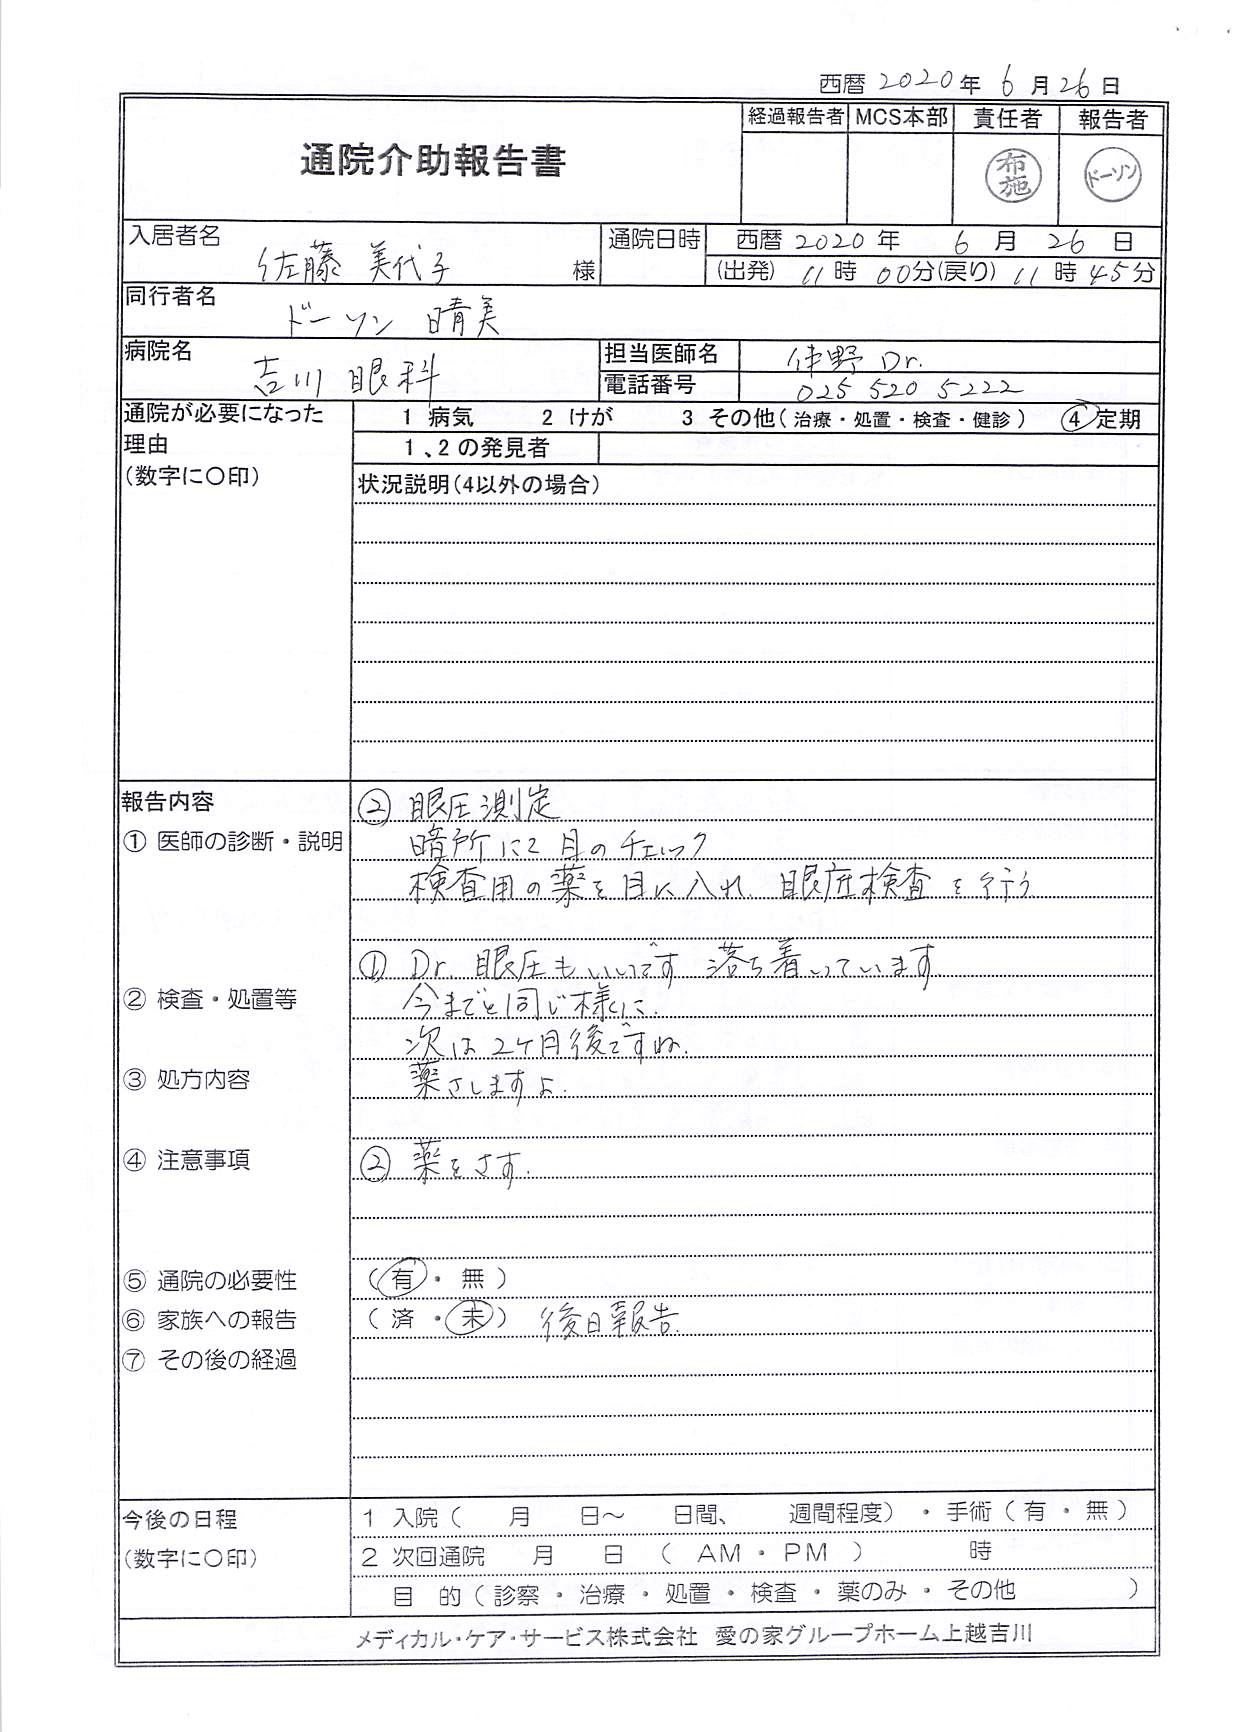 西暦 2020 年 6 月 26 日
通院介助報告書
経過報告者 MCS本部 責任者 報告者
布施 ドーソン
入居者名 佐藤 美代子 様
通院日時 西暦 2020 年 6 月 26 日
(出発) 11 時 00分(戻り) 11 時 45分
同行者名 ドーソン 晴美
病院名 吉川 眼科
担当医師名 野 Dr.
電話番号 025 520 5222
通院が必要になった理由
(数字に〇印)
1 病気 2 けが 3 その他(治療・処置・検査・健診) ④定期
1、2の発見者
状況説明(4以外の場合)
報告内容
② 眼圧測定
① 医師の診断・説明
暗所にて 目のチェック
検査用の薬を目に入れ、眼圧検査を行う
① Dr. 眼圧もいいです 落ち着いています。
② 検査・処置等
今までと同じ様に。
次は2ケ月後ですね。
③ 処方内容
薬さしますよ。
④ 注意事項
② 薬をさす。
⑤ 通院の必要性 (有・無)
⑥ 家族への報告 (済・未) 後日報告
⑦ その後の経過
今後の日程
(数字に〇印)
1 入院( 月 日～ 日間、 週間程度)・手術(有・無)
2 次回通院 月 日 ( AM・PM ) 時
目 的(診察・治療・処置・検査・薬のみ・その他 )
メディカル・ケア・サービス株式会社 愛の家グループホーム上越吉川